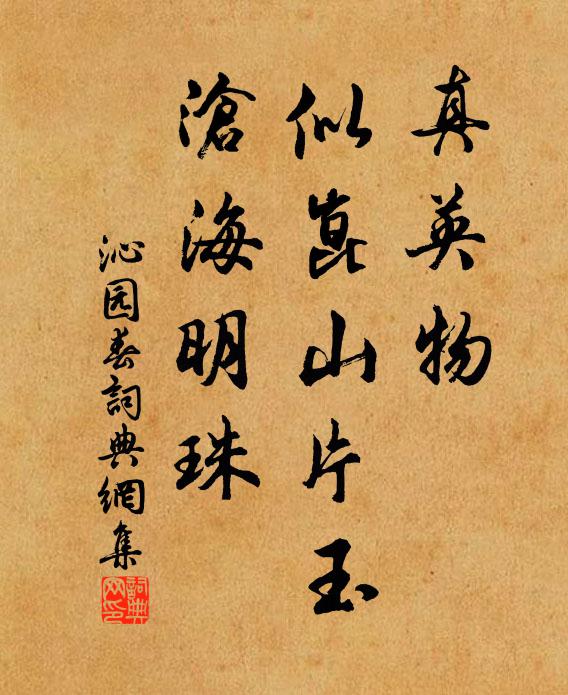 真英物
似崑山片玉
滄海明珠
沁园春詞典網集
詞典网印